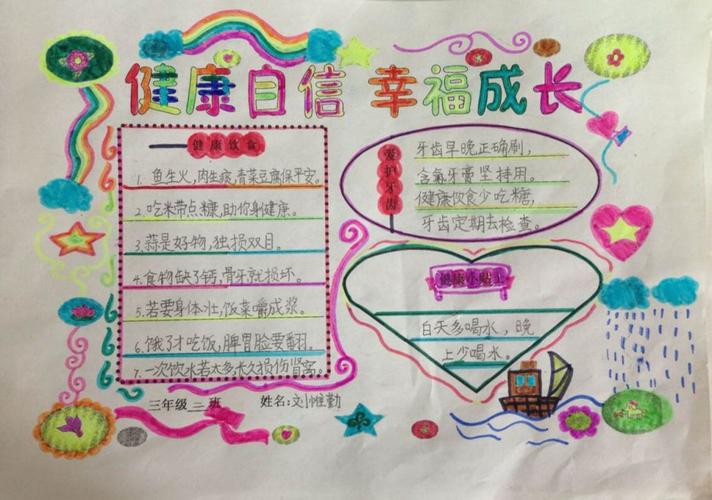 健康自信 幸福成长
健康饮食
1. 鱼生火，肉生痰，青菜豆腐保平安。
2. 吃米带点糠，助你身健康。
3. 蒜是好物，独损双目。
4. 食物缺了钙，骨牙就损坏。
5. 若要身体壮，饭菜嚼成浆。
6. 饿了才吃饭，脾胃脸要翻。
7. 一次饮水若太多，水欠损伤肾窝。
三年级二班 姓名：刘惟勤
爱护牙齿
牙齿早晚正确刷，
含氟牙膏坚持用。
健康饮食少吃糖，
牙齿定期去检查。
健康小贴士
白天多喝水，晚
上少喝水。